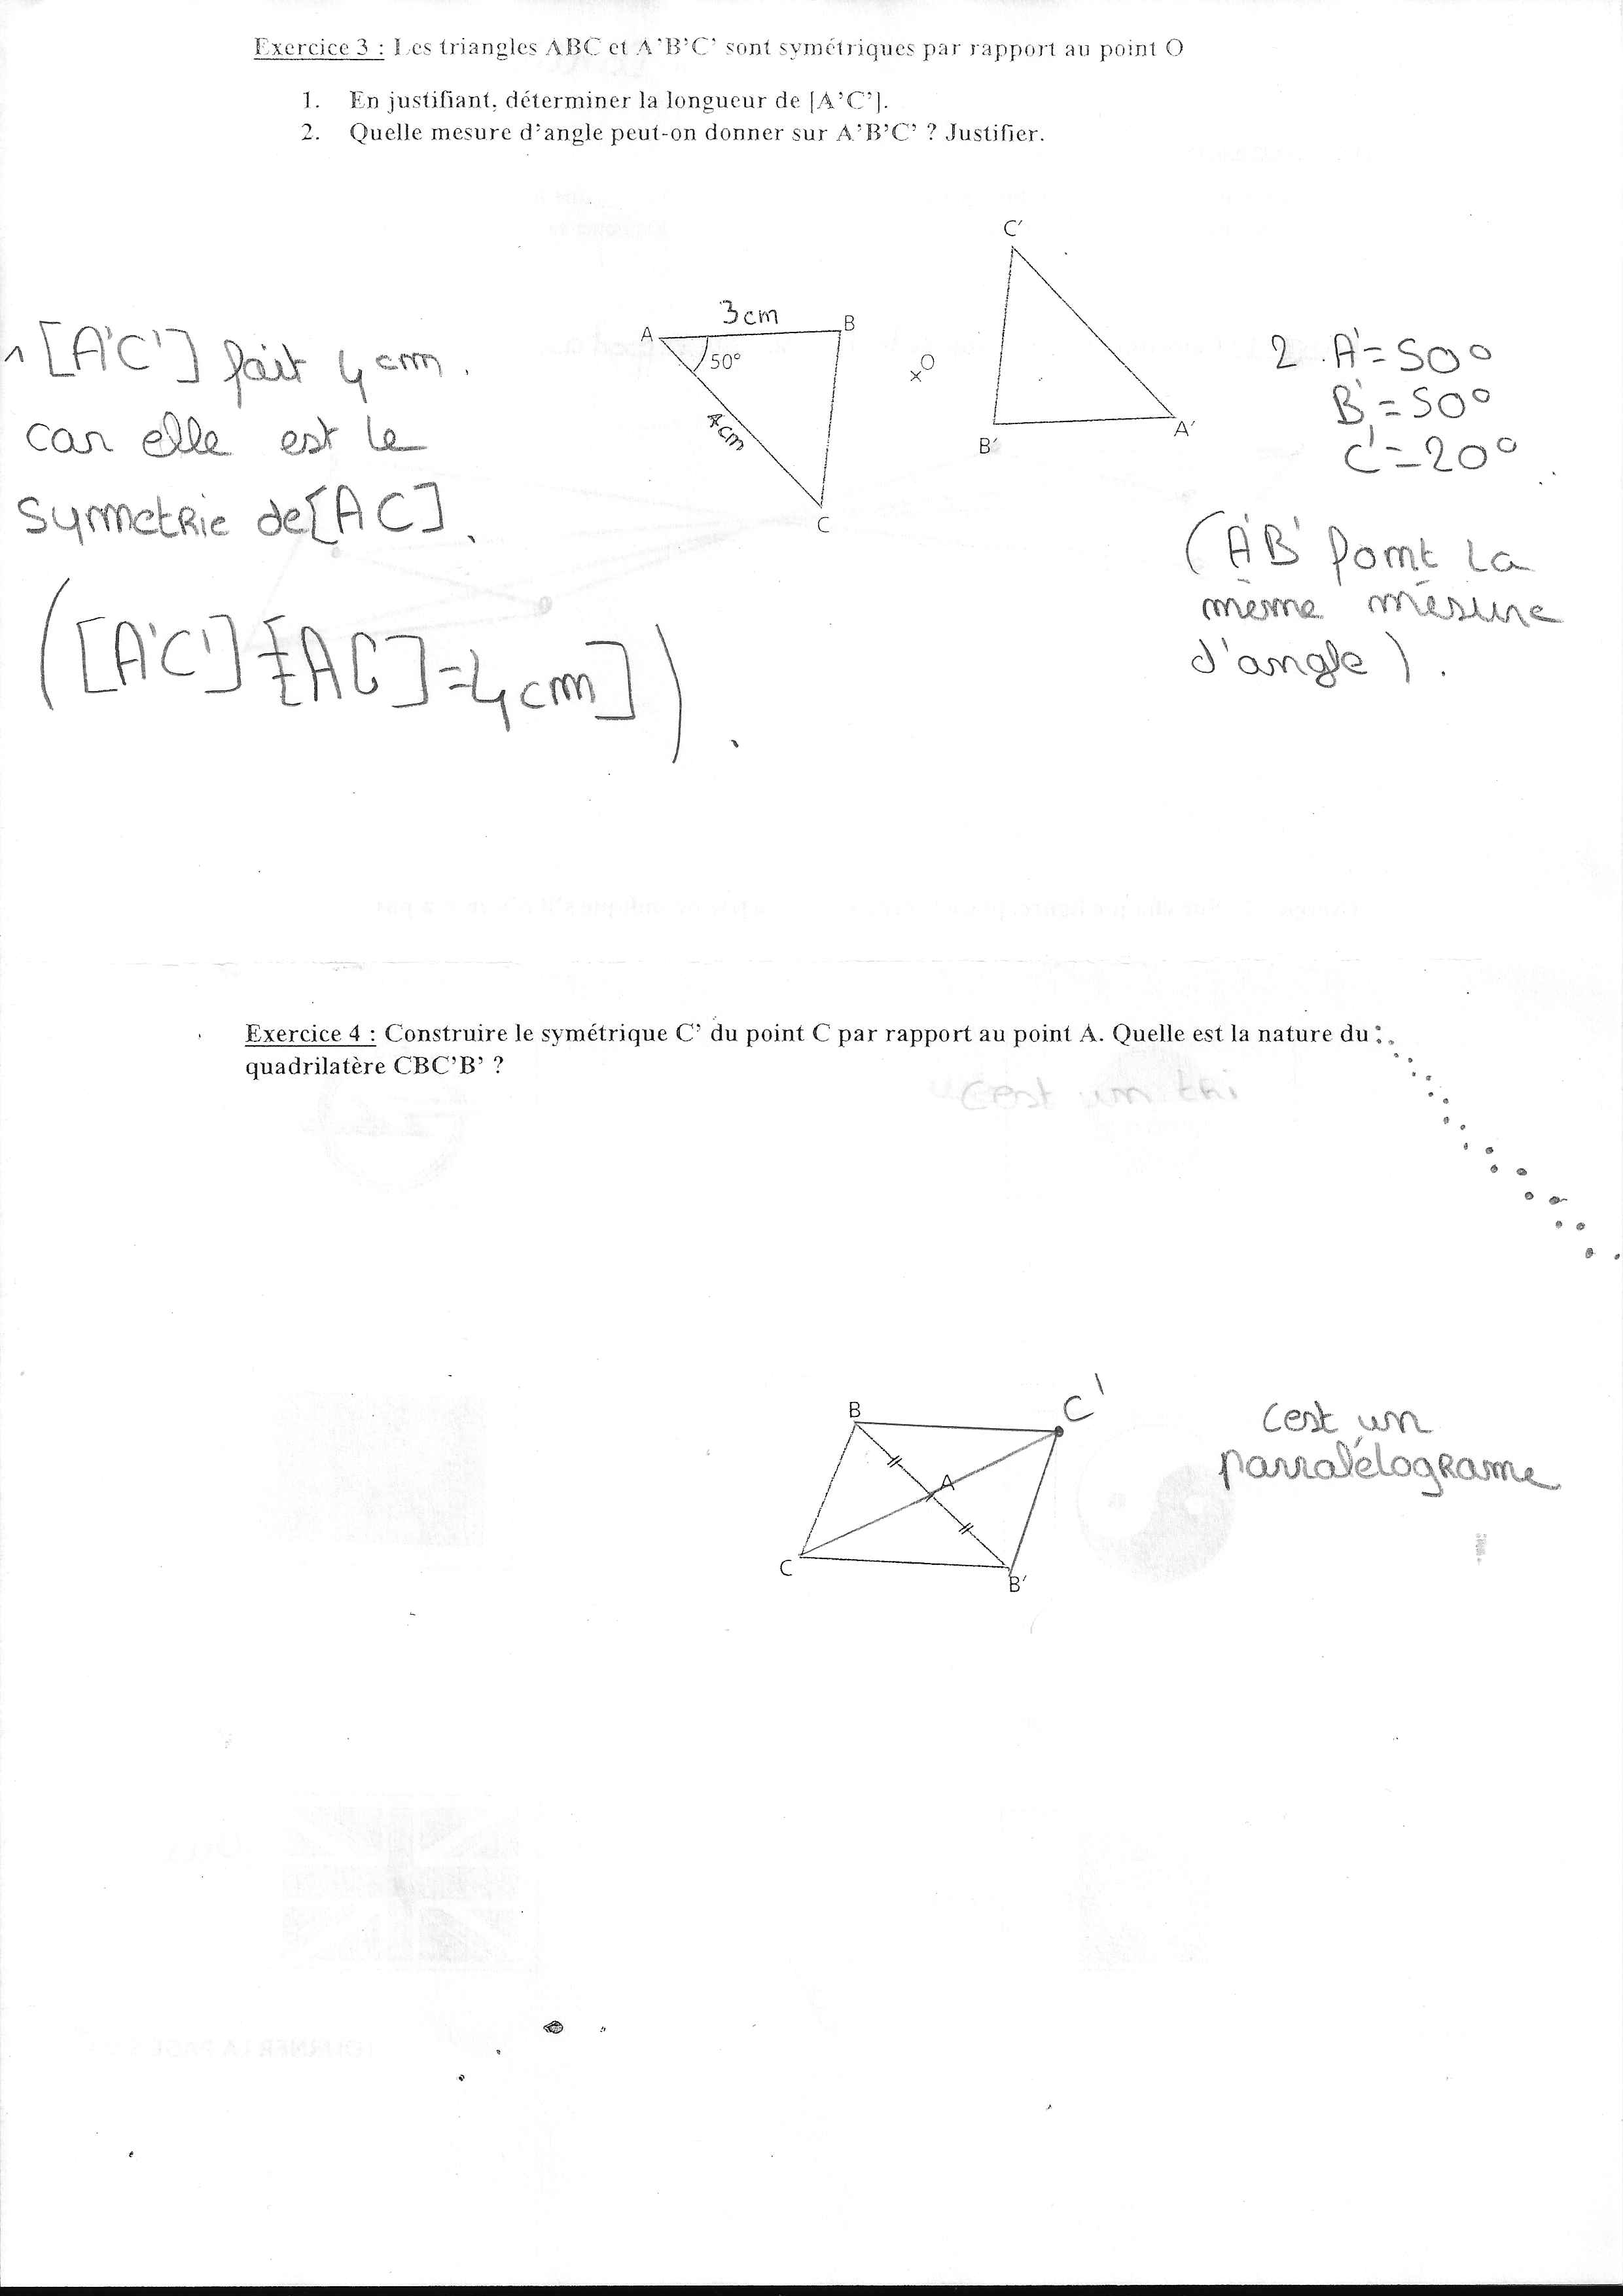 Exercice 3 : Les triangles ABC et A’B’C’ sont symétriques par rapport au point O
1. En justifiant, déterminer la longueur de [A’C’].
2. Quelle mesure d’angle peut-on donner sur A’B’C’ ? Justifier.
C'
3cm
A
B
50°
O
4cm
B'
A'
C
1 [A'C'] fait 4 cm.
car elle est le
symmetrie de [AC].
([A'C'] = [AC] = 4 cm])
2. A' = 50°
B' = 50°
C' = 20°
(A'B' font la
même mésure
d'angle).
Exercice 4 : Construire le symétrique C’ du point C par rapport au point A. Quelle est la nature du
quadrilatère CBC’B’ ?
cest un tri
B
C'
A
C
B'
cest un
parralélograme